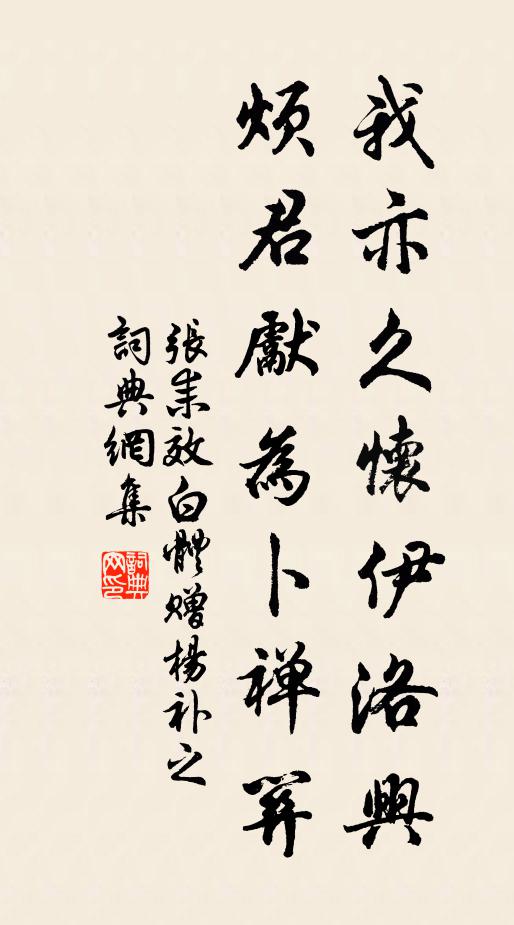 我亦久懷伊洛興
煩君獻為卜禪關
張耒效白體贈楊补之
詞典網集
詞典网印